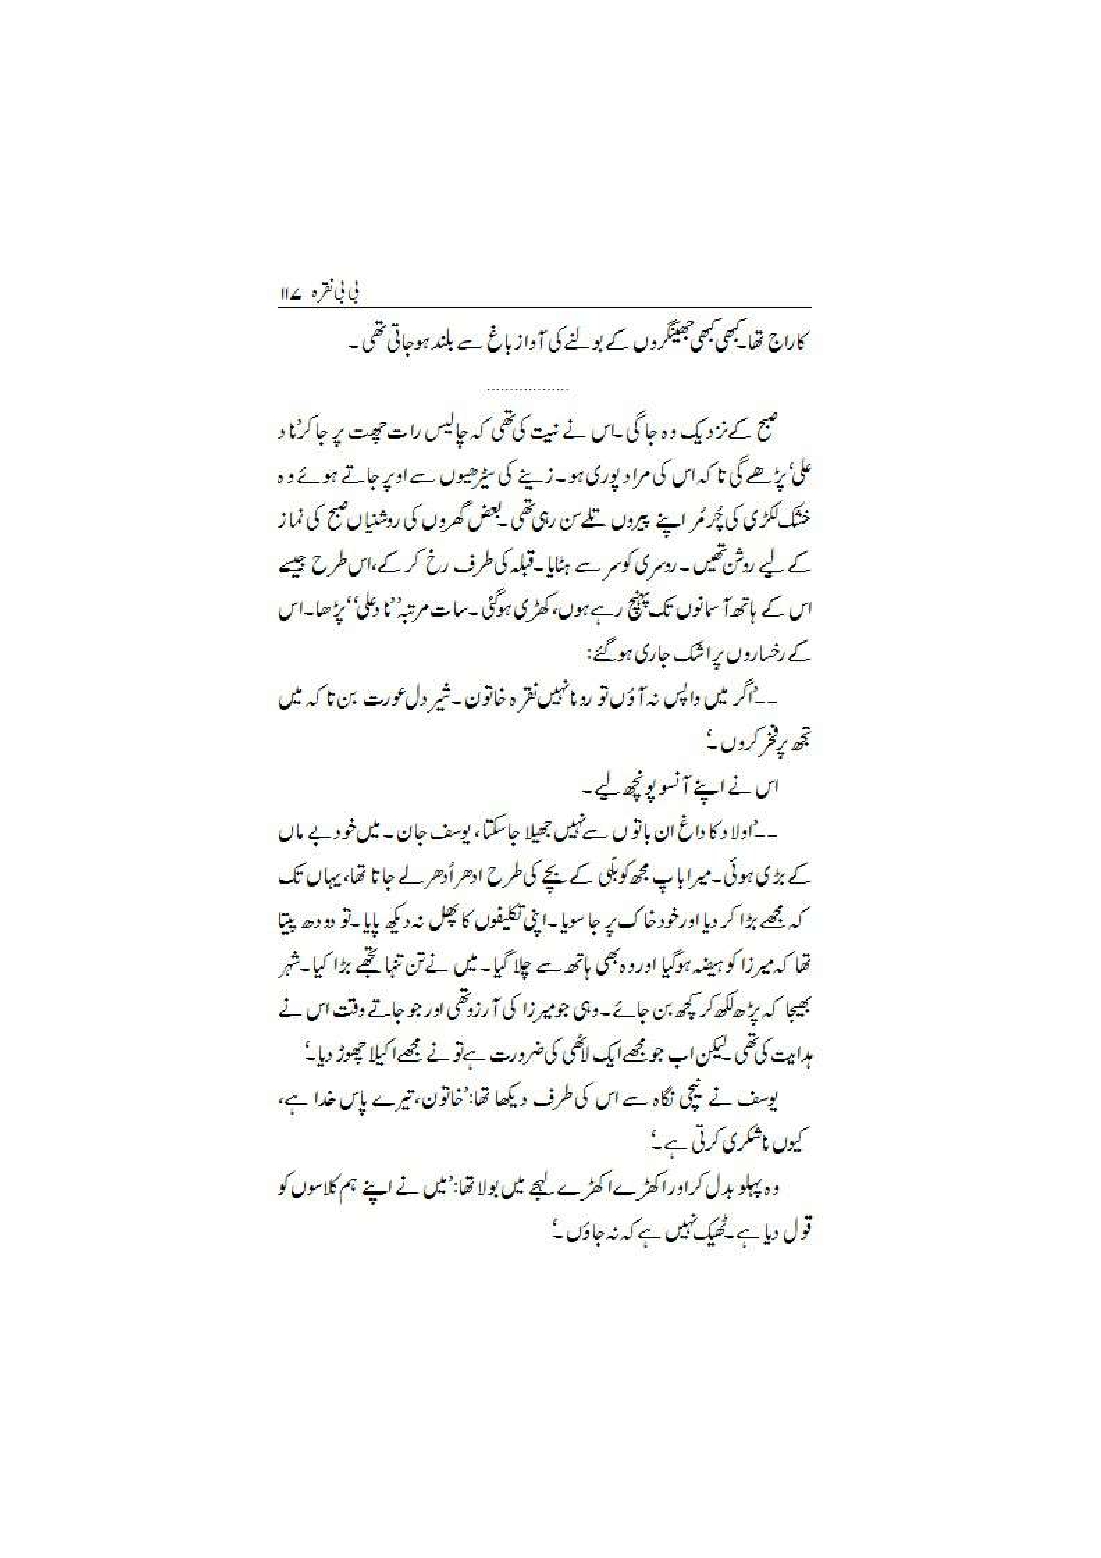 بی بی نقرہ ۱۱۷
کاراج تھا۔ کبھی کبھی جھینگروں کے بولنے کی آواز باغ سے بلند ہو جاتی تھی۔
..................
صبح کے نزدیک وہ جاگی۔ اس نے نیت کی تھی کہ چالیس رات چھت پر جا کر 'ناد
علی' پڑھے گی تا کہ اس کی مراد پوری ہو۔ زینے کی سیڑھیوں سے اوپر جاتے ہوئے وہ
خشک لکڑی کی چُرمُر اپنے پیروں تلے سن رہی تھی۔ بعض گھروں کی روشنیاں صبح کی نماز
کے لیے روشن تھیں۔ روسری کو سر سے ہٹایا۔ قبلہ کی طرف رخ کر کے، اس طرح جیسے
اس کے ہاتھ آسمانوں تک پہنچ رہے ہوں، کھڑی ہو گئی۔ سات مرتبہ ''ناد علی'' پڑھا۔ اس
کے رخساروں پر اشک جاری ہو گئے:
__'اگر میں واپس نہ آؤں تو رونا نہیں نقرہ خاتون۔ شیر دل عورت بن تا کہ میں
تجھ پر فخر کروں۔'
اس نے اپنے آنسو پونچھ لیے۔
__'اولاد کا داغ ان باتوں سے نہیں جھیلا جا سکتا، یوسف جان۔ میں خود بے ماں
کے بڑی ہوئی۔ میرا باپ مجھ کو بلی کے بچے کی طرح ادھر اُدھر لے جاتا تھا، یہاں تک
کہ مجھے بڑا کر دیا اور خود خاک پر جا سویا۔ اپنی تکلیفوں کا پھل نہ دیکھ پایا۔ تو دودھ پیتا
تھا کہ میرزا کو ہیضہ ہو گیا اور وہ بھی ہاتھ سے چلا گیا۔ میں نے تن تنہا تجھے بڑا کیا۔ شہر
بھیجا کہ پڑھ لکھ کر کچھ بن جائے۔ وہی جو میرزا کی آرزو تھی اور جو جاتے وقت اس نے
ہدایت کی تھی۔ لیکن اب جو مجھے ایک لاٹھی کی ضرورت ہے تو نے مجھے اکیلا چھوڑ دیا۔'
یوسف نے نیچی نگاہ سے اس کی طرف دیکھا تھا: 'خاتون، تیرے پاس خدا ہے،
کیوں ناشکری کرتی ہے۔'
وہ پہلو بدل کر اور اکھڑے اکھڑے لہجے میں بولا تھا: 'میں نے اپنے ہم کلاسوں کو
قول دیا ہے۔ ٹھیک نہیں ہے کہ نہ جاؤں۔'